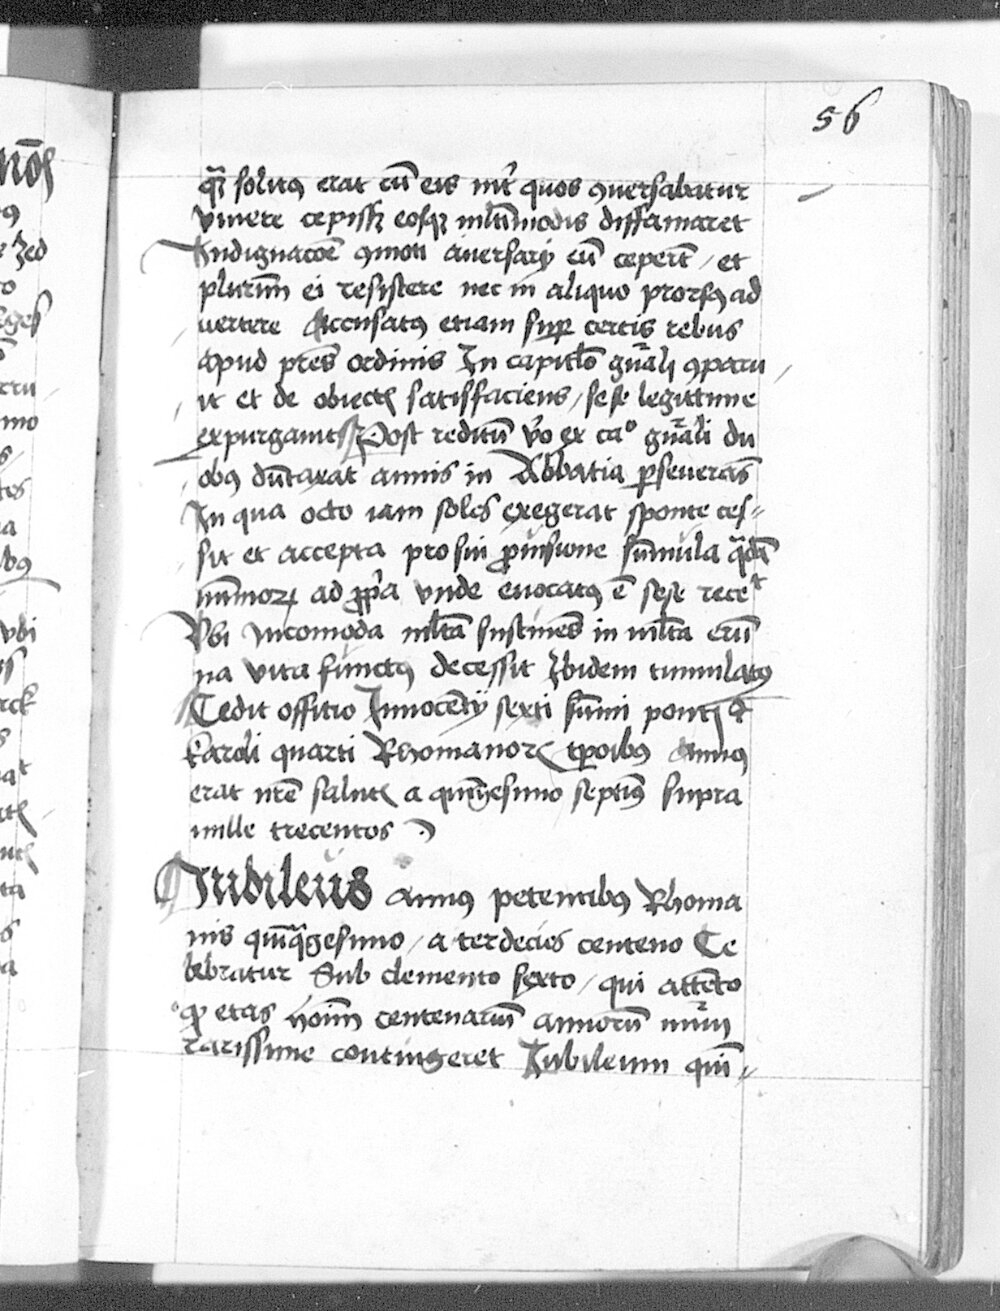 56
quā solitus erat cū eis int̄ quos ꝯuersabatur
viuere cepisset eosqꝫ ml̄timodis diffamaret
Indignacōe ꝯmoti aduersarij eū ceperūt / et
plurimū ei resistere nec in aliquo prorsus ad
uertere Accusatus etiam suꝑ certis rebus
apud pr̄es ordinis In capitl̄o gn̄ali ꝯparu
it et de obiectis satisfaciens / sese legittime
expurgauit Post reditū v̄o ex caᵒ gn̄ali du
obꝰ dūtaxat annis in Abbatia ꝑseuerās
In qua octo iam soles exegerat sponte ces-
sit et accepta pro sui ꝓuisione sūmula quadā
nūmorꝝ ad ꝓpria vnde euocatus ē sese recet
Vbi incomoda ml̄ta sustinēs in ml̄ta erū
na vita functus decessit Ibidem tumulatus
Cedit offitio Innocētij sexti sūmi pontif
karoli quarti Rhomanorꝝ tp̄oribꝰ Annus
erat nr̄e salutis a quinq̄gesimo septimꝰ supra
mille trecentos
Iubileus annus petentibꝰ Rhoma
nis quīquagesimo / a terdecies centeno Ce
lebratur Sub clemento sexto / qui attēto
ꝙ etas hoīm centenariū annorū nūm̄
rarissime contingeret Iubileum quī-